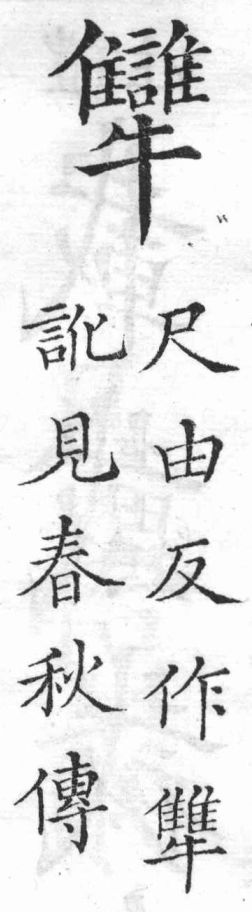 犫
尺由反作犨
訛見春秋傳